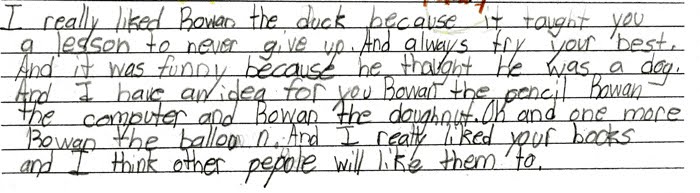 I really liked Bowan the duck because it taught you
a lesson to never give up. And always try your best.
And it was funny because he thought he was a dog.
And I have an idea for you Bowan the pencil Bowan
the computer and Bowan the doughnut. Oh and one more
Bowan the balloon. And I really liked your books
and I think other pepole will like them to.